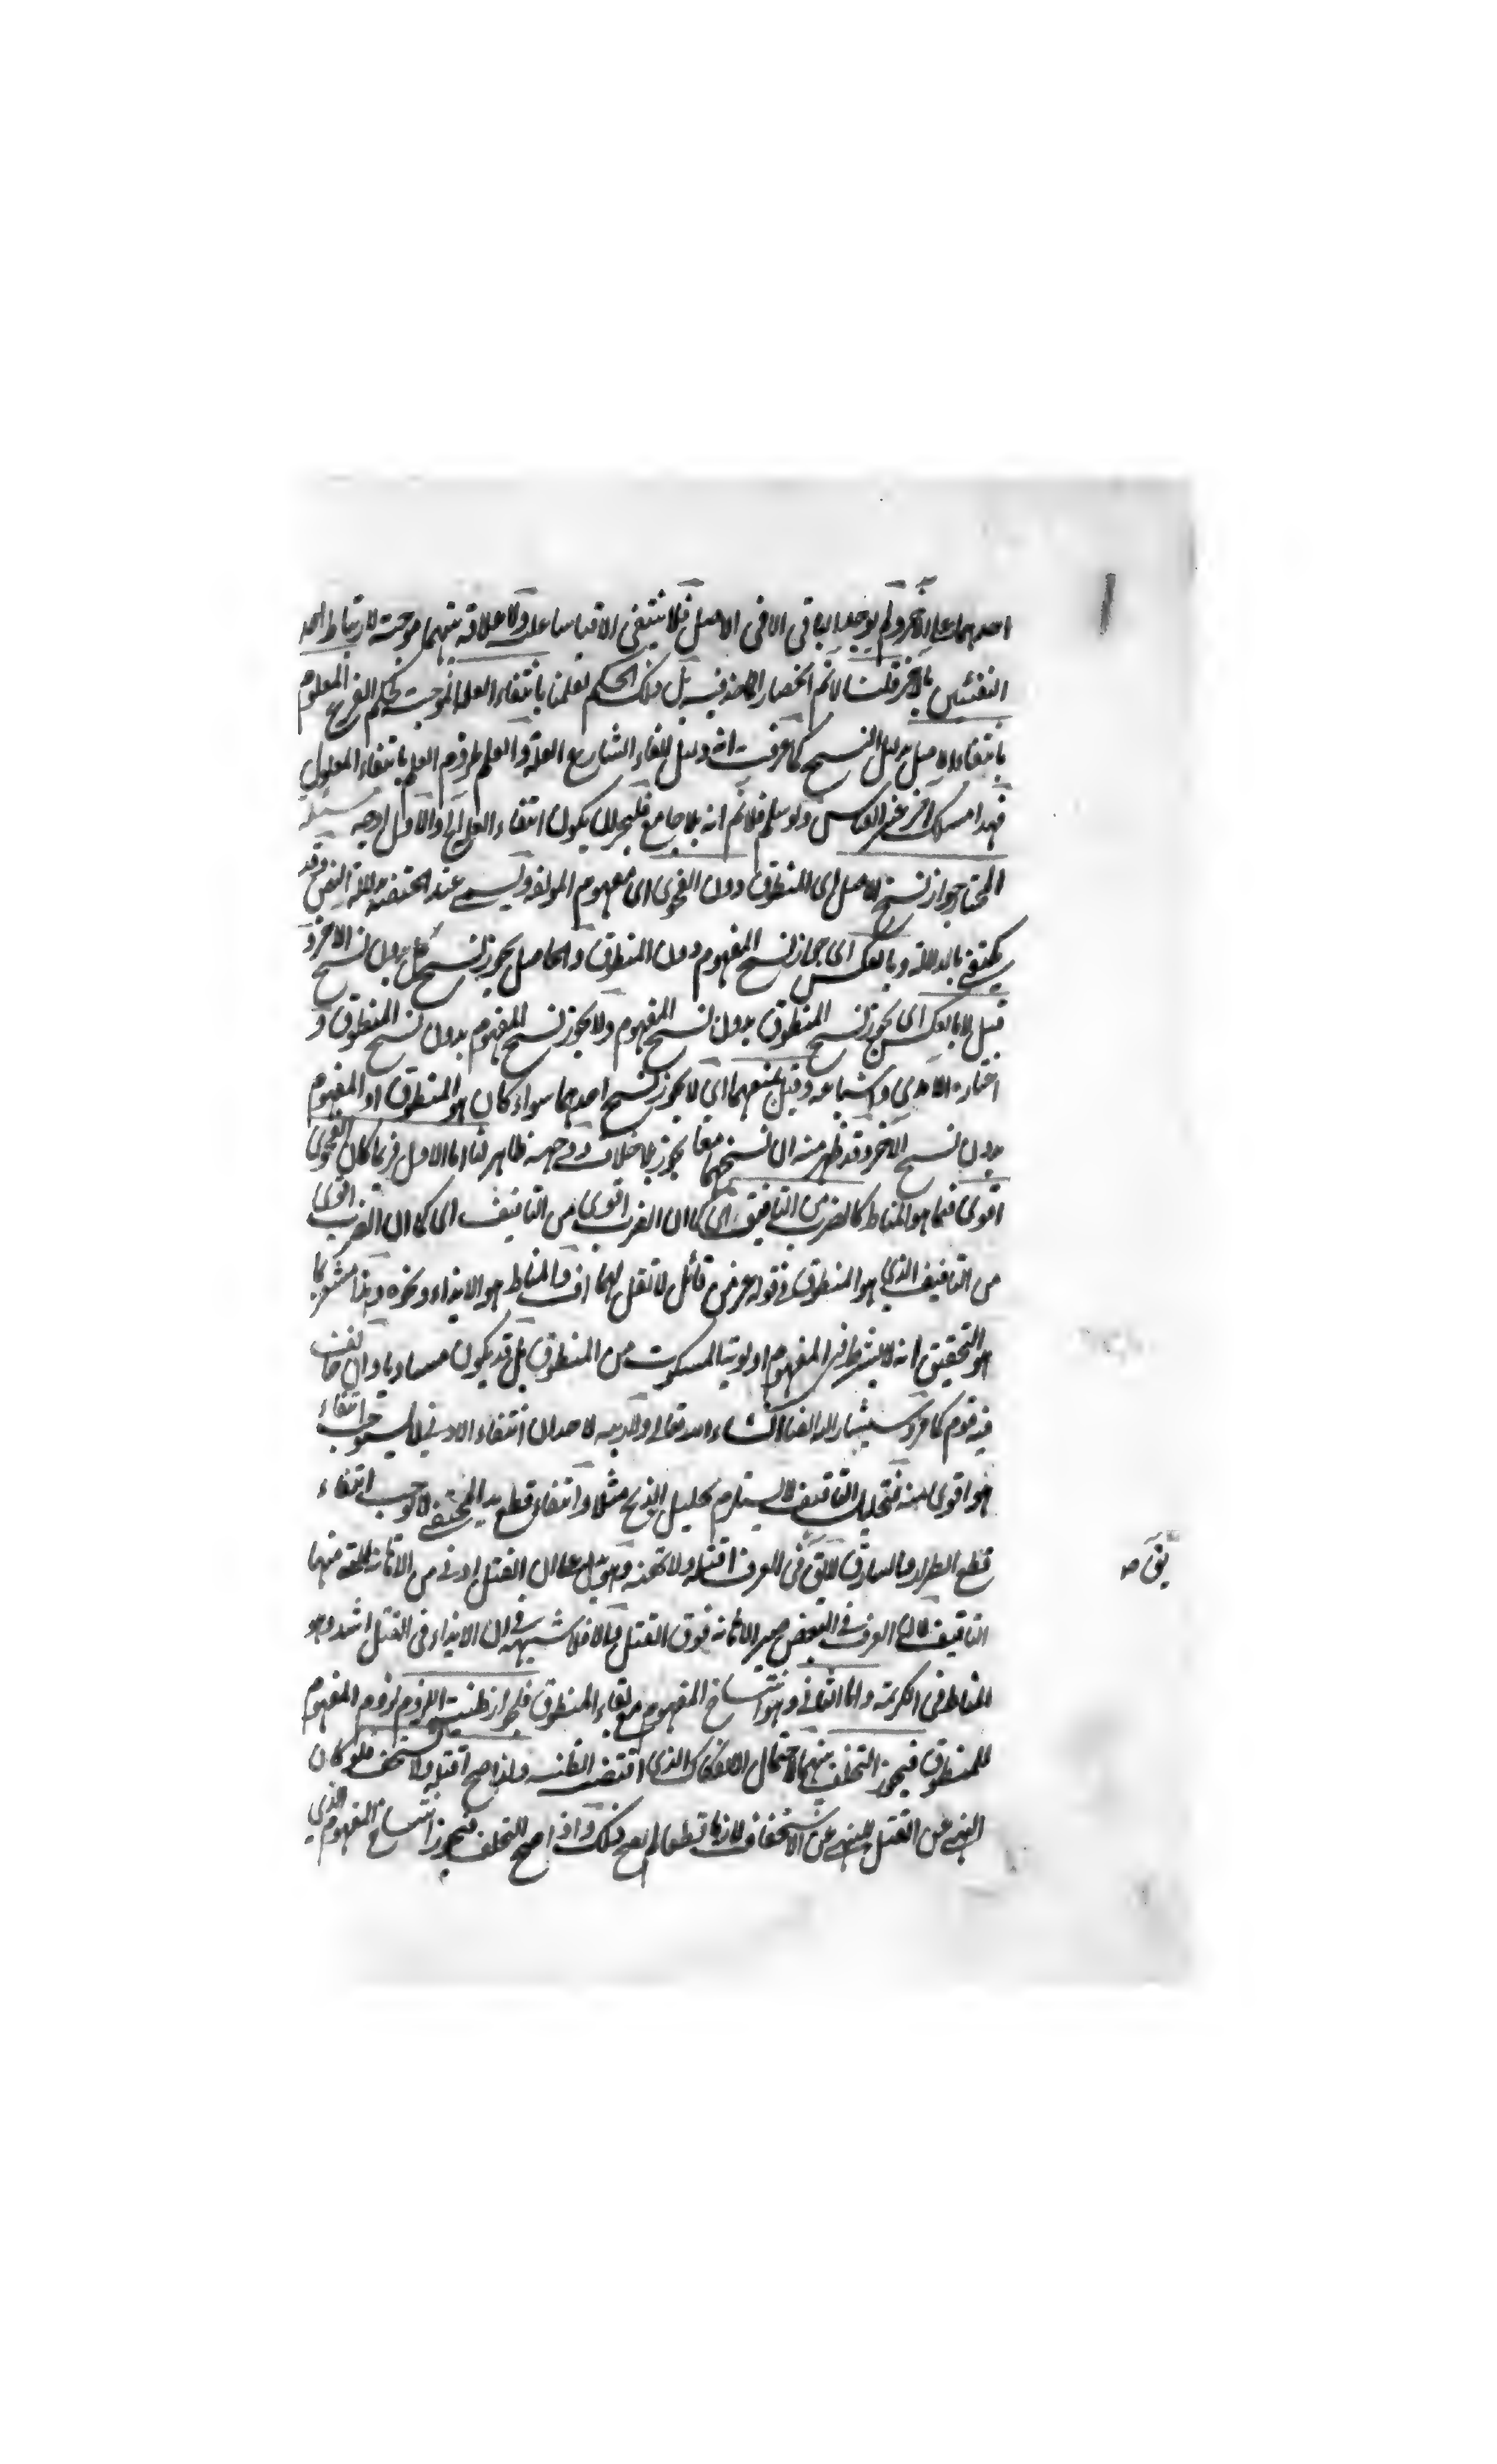 احدهما على الآخر ولم يوجد الباقي الا في الاصل فلا ينتفي الا قياسا عليه ولا علاقة بينهما موجبة لارتباط احد
بالآخر قلنا لا نم انحصار فيه بل ذلك الحكم لعلمنا بانتفاء العلة الموجبة لحكم الفرع المعلوم
بانتفاء الاصل بدليل النسخ كما عرفت انه دليل الغاء الشارع العلة والعلم ملزوم العلم بانتفاء المعلول
فهذا مسلك آخر غير القياس ولو سلم فلا نم انه بلا جامع فليجز ان يكون انتفاء العلة اياه والاول اوجه مسئلة
المختار جواز نسخ الاصل اى المنطوق دون الفحوى اى مفهوم الموافقة ويسمى عند الحنفية دلالة النص وقد
يكتفى بالدلالة وبالعكس اى جواز نسخ المفهوم دون المنطوق والحاصل يجوز نسخ كل بدون نسخ الآخر و
قيل لا بالعكس اى يجوز نسخ المنطوق بدون نسخ المفهوم ولا يجوز نسخ المفهوم بدون نسخ المنطوق و
اختاره الآمدي واشياعه وقيل بمنعهما اى لا يجوز نسخ احدهما سواء كان هو المنطوق او المفهوم
بدون نسخ الآخر وقد ظهر منه ان نسخهما معا يجوز بلا خلاف ووجهه ظاهر لنا اما الاول فربما كان الفحوى
اقوى فيما هو المناط كالضرب من التافيف اى كما ان الضرب اقوى من التافيف اى كما ان الضرب اقوى
من التافيف الذي هو المنطوق في قوله عز من قائل لا تقل لهما اف والمناط هو الايذاء ونحوه وهذا مشعر بما
هو التحقيق انه لا يشترط في المفهوم اولوية المسكوت من المنطوق بل قد يكون مساويا وان خالف
فيه قوم كما مر وسيشار اليه ايضا ان شاء الله تعالى ولا ريبة لاحد ان انتفاء الادنى لا يستوجب انتفاء
هو اقوى منه فتحليل التافيف لا يستلزم تحليل الذبح مثلا وانتفاء قطع يد المختفي لا يوجب انتفاء
قطع الطرار والسارق لا يق في العرف اقتله ولا تهنه وهو يدل على ان القتل ادنى من الاهانة منها
التافيف لان العرف في البعض صير الاهانة فوق القتل والا فلا شبهة في ان الايذاء في القتل اشد وهو
المناط في الكريمة واما الثاني وهو انتساخ المفهوم مع بقاء المنطوق فلجواز ظنية اللزوم لزوم المفهوم
للمنطوق فيجوز التخلف بينهما لاحتمال الانفكاك الذي اقتضته الظنية ولذا صح اقتله ولا تستخف فلو كان
النهي عن القتل للنهي عن الاستخفاف لازما قطعا لم يصح ذلك واذا صح التخلف فيجوز انتساخ المفهوم الذي